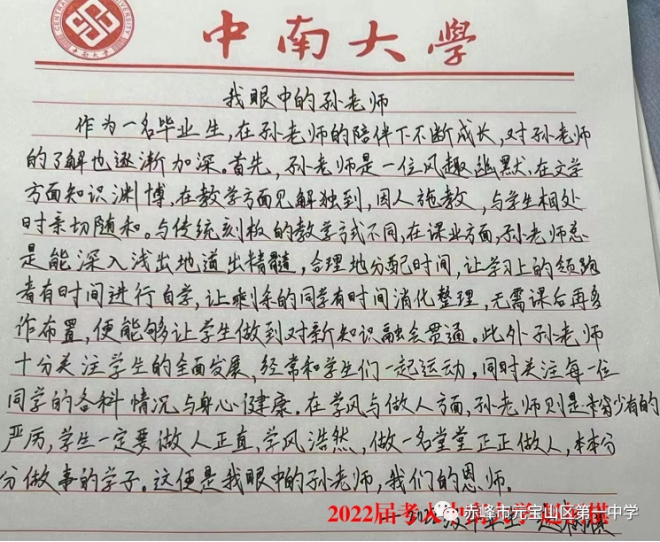 中南大学
我眼中的孙老师
作为一名毕业生,在孙老师的陪伴下不断成长,对孙老师
的了解也逐渐加深。首先,孙老师是一位风趣幽默,在文学
方面知识渊博,在教学方面见解独到,因人施教,与学生相处
时亲切随和。与传统刻板的教学方式不同,在课业方面,孙老师总
是能深入浅出地道出精髓,合理地分配时间,让学习上的领跑
者有时间进行自学,让剩余的同学有时间消化整理,无需课后再多
作布置,便能够让学生做到对新知识融会贯通。此外孙老师
十分关注学生的全面发展,经常和学生们一起运动,同时关注每一位
同学的各科情况与身心健康。在学风与做人方面,孙老师则是非常少有的
严厉,学生一定要做人正直,学风浩然,做一名堂堂正正做人,本本分
分做事的学子。这便是我眼中的孙老师,我们的恩师。
2022届考
赤峰市元宝山区第一中学